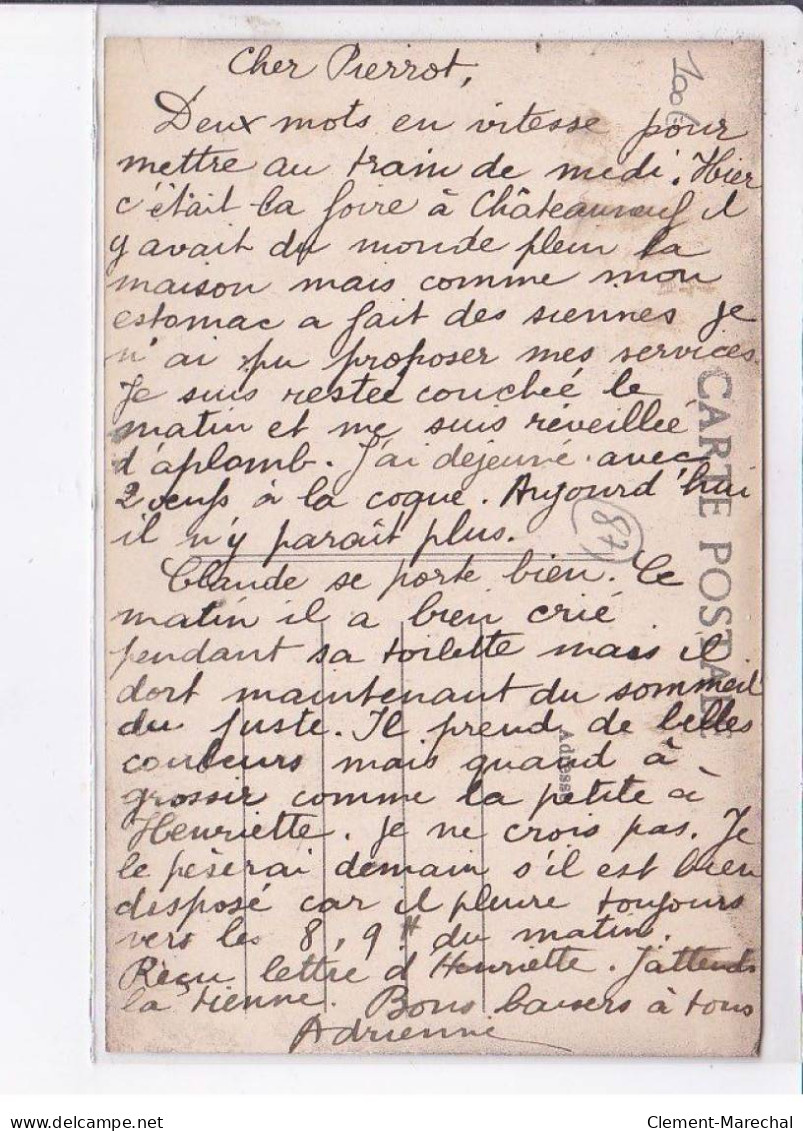 Cher Pierrot,
Deux mots en vitesse pour
mettre au train de midi. Hier
c'était la foire à Châteauneuf il
y avait du monde plein la
maison mais comme mon
estomac a fait des siennes je
n'ai pu proposer mes services.
Je suis restée couchée le
matin et me suis réveillée
d'aplomb. J'ai déjeuné avec
2 œufs à la coque. Aujourd'hui
il n'y paraît plus.
87
Claude se porte bien. Ce
matin il a bien crié
pendant sa toilette mais il
dort maintenant du sommeil
du juste. Il prend de belles
couleurs mais quand à
grossir comme la petite à
Henriette. je ne crois pas. Je
le pèserai demain s'il est bien
disposé car il pleure toujours
vers les 8, 9 H du matin.
Reçu lettre d'Henriette. J'attends
la tienne. Bons baisers à tous
Adrienne
CARTE POSTALE
Adresse
Clement-Marechal